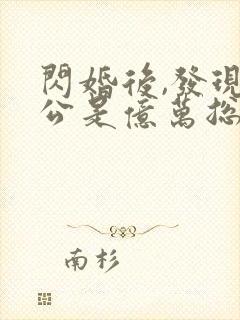 閃婚後,發現
公是億萬總
南杉